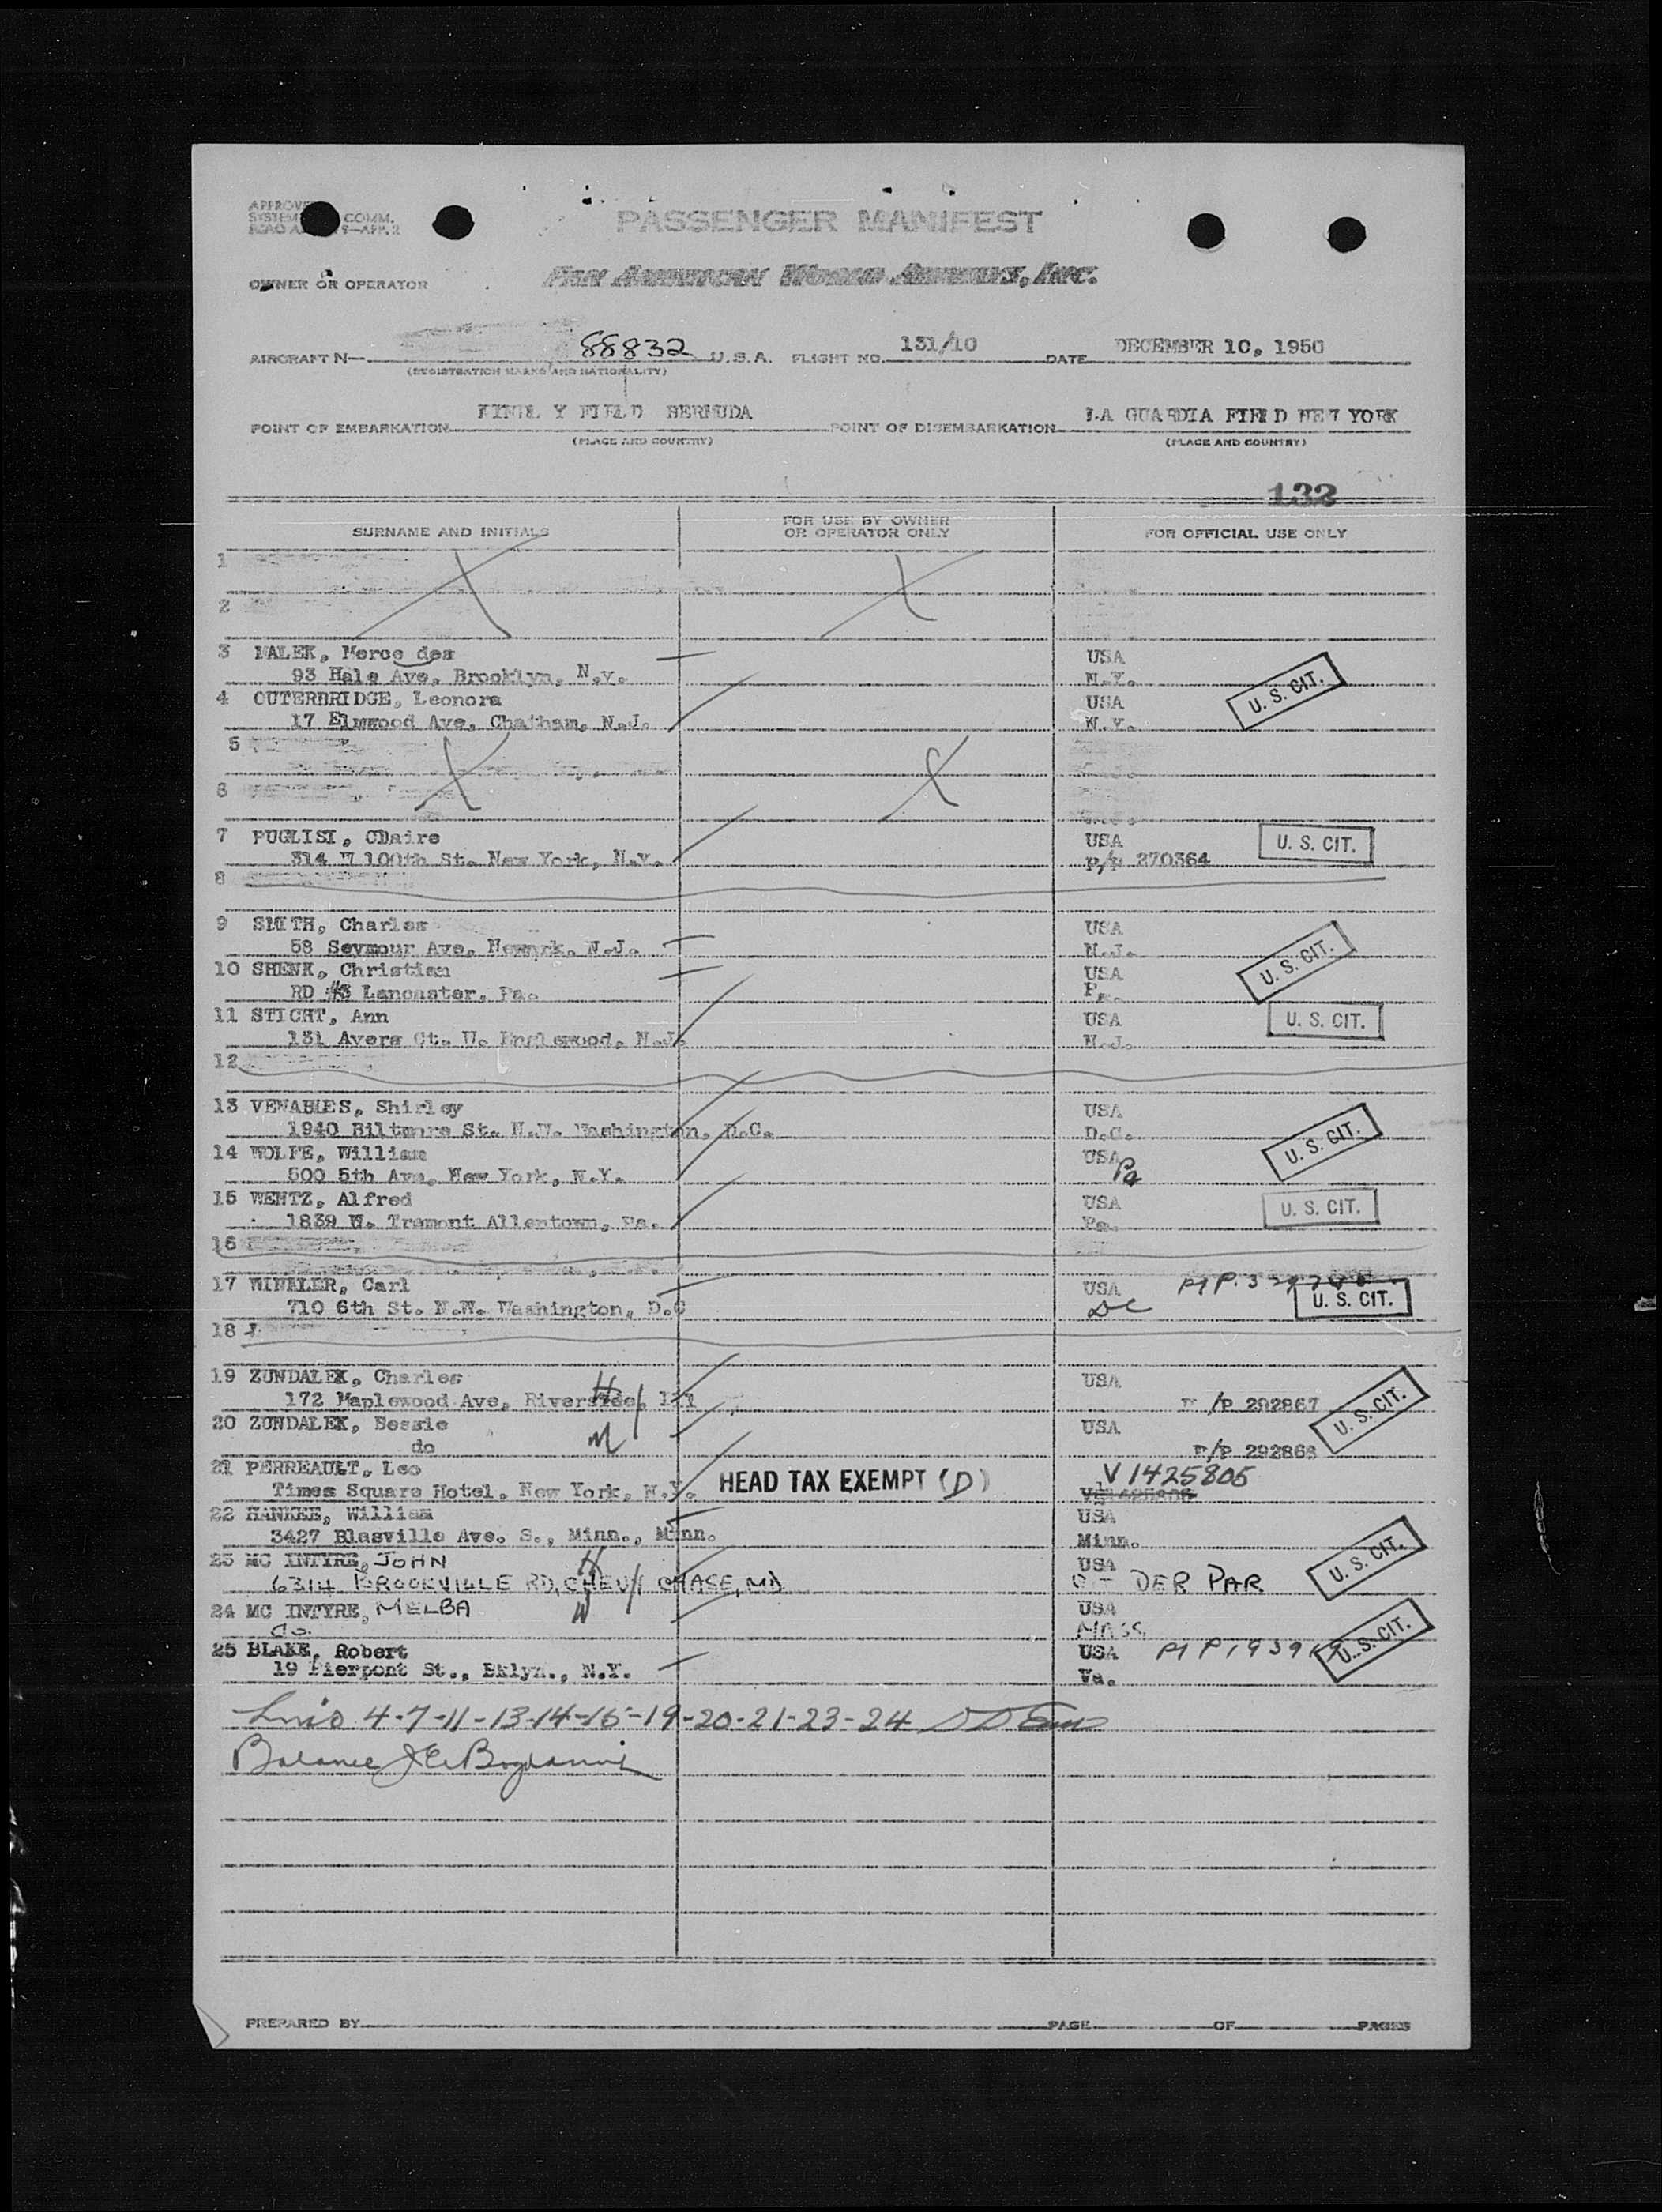 COMM.
9—APP. 2
PASSENGER MANIFEST
OWNER OR OPERATOR
PAN AMERICAN WORLD AIRWAYS, INC.
AIRCRAFT N— 88832 U.S.A. FLIGHT NO. 131/10 DATE DECEMBER 10, 1950
(REGISTRATION MARKS AND NATIONALITY)
POINT OF EMBARKATION FIELD BERMUDA POINT OF DISEMBARKATION LA GUARDIA FIELD NEW YORK
(PLACE AND COUNTRY) (PLACE AND COUNTRY)
132
SURNAME AND INITIALS FOR USE BY OWNER OR OPERATOR ONLY FOR OFFICIAL USE ONLY
1
2
3 MALEK, Merce des USA
93 Hale Ave, Brooklyn, N.Y. N.Y. U. S. CIT.
4 OUTERBRIDGE, Leonora USA
17 Elmwood Ave, Chatham, N.J. N.Y.
5
6
7 PUGLISI, Claire USA U. S. CIT.
314 W 100th St. New York, N.Y. P/P 270364
8
9 SMITH, Charles USA
58 Seymour Ave, Newark, N.J. N.J. U. S. CIT.
10 SHENK, Christian USA
RD #3 Lancaster, Pa. Pa.
11 STICHT, Ann USA U. S. CIT.
131 Avers Ct. W. Englewood, N.J. N.J.
12
13 VENABLES, Shirley USA
1940 Biltmore St. N.W. Washington, D.C. D.C. U. S. CIT.
14 WOLFE, William USA
500 5th Ave, New York, N.Y. Pa
15 WENTZ, Alfred USA U. S. CIT.
1839 W. Tremont Allentown, Pa. Pa.
16
17 WINKLER, Carl USA
710 6th St. N.W. Washington, D.C DC U. S. CIT.
18
19 ZUNDALEK, Charles H USA
172 Maplewood Ave, Riverside, Ill P/P 292867 U. S. CIT.
20 ZUNDALEK, Bessie USA
do P/P 292868
21 PERREAULT, Leo V 1425805
Times Square Hotel, New York, N.Y. HEAD TAX EXEMPT (D)
22 HANKEE, William USA
3427 Blasville Ave. S., Minn., Minn. Minn. U. S. CIT.
23 MC INTYRE, JOHN H USA
6314 BROOKVILLE RD, CHEVY CHASE, MD DER PAR
24 MC INTYRE, MELBA W USA
do. MASS U. S. CIT.
25 BLAKE, Robert USA
19 Pierpont St., Bklyn., N.Y. Va.
4-7-11-13-14-15-19-20-21-23-24
Balance
PREPARED BY PAGE OF PAGES